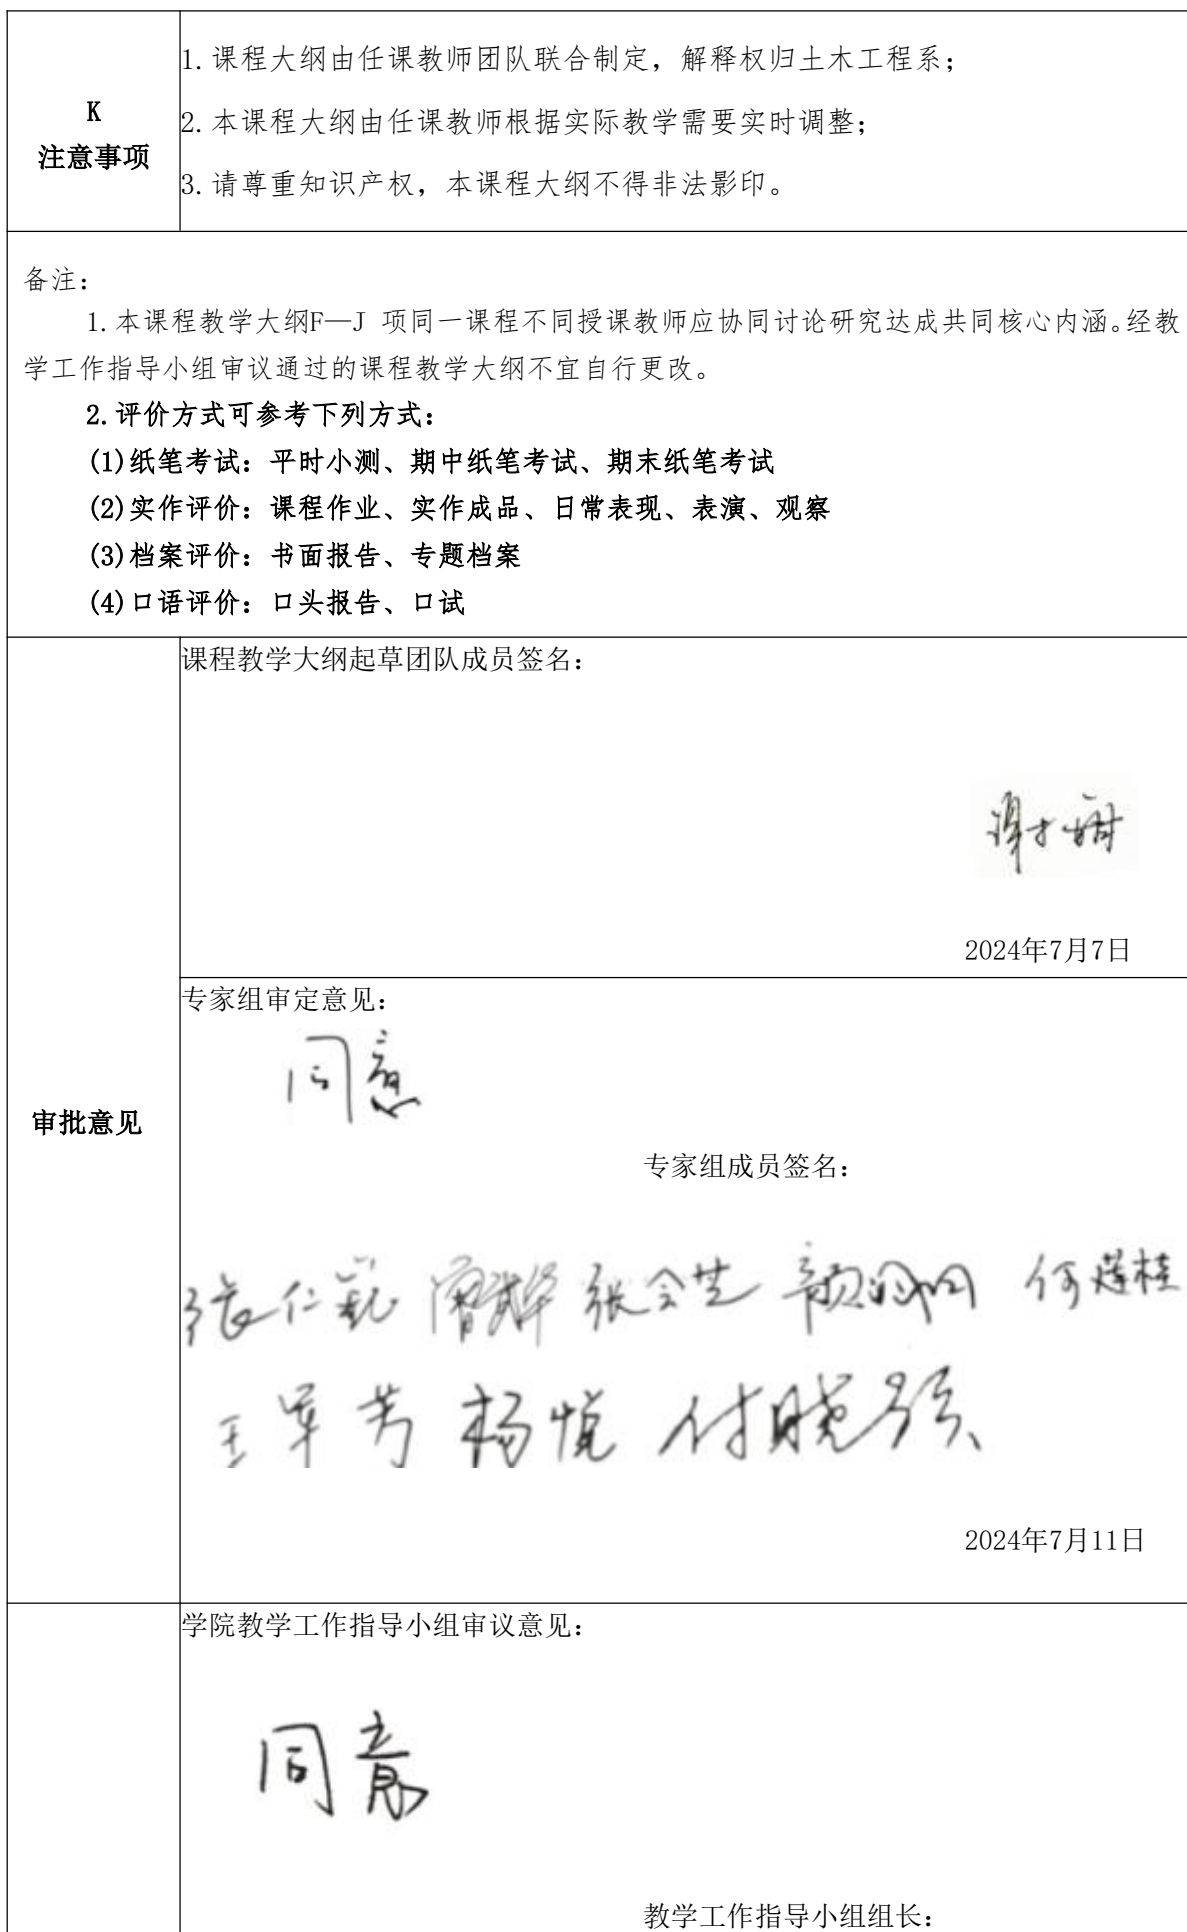 K
注意事项
1.课程大纲由任课教师团队联合制定，解释权归土木工程系；
2.本课程大纲由任课教师根据实际教学需要实时调整；
3.请尊重知识产权，本课程大纲不得非法影印。
备注：
1.本课程教学大纲F—J 项同一课程不同授课教师应协同讨论研究达成共同核心内涵。经教
学工作指导小组审议通过的课程教学大纲不宜自行更改。
2.评价方式可参考下列方式：
(1)纸笔考试：平时小测、期中纸笔考试、期末纸笔考试
(2)实作评价：课程作业、实作成品、日常表现、表演、观察
(3)档案评价：书面报告、专题档案
(4)口语评价：口头报告、口试
审批意见
课程教学大纲起草团队成员签名：
2024年7月7日
专家组审定意见：
同意
专家组成员签名：
张仁 张会芝 何莲桂
王军芳 杨悦 付晓强
2024年7月11日
学院教学工作指导小组审议意见：
同意
教学工作指导小组组长：